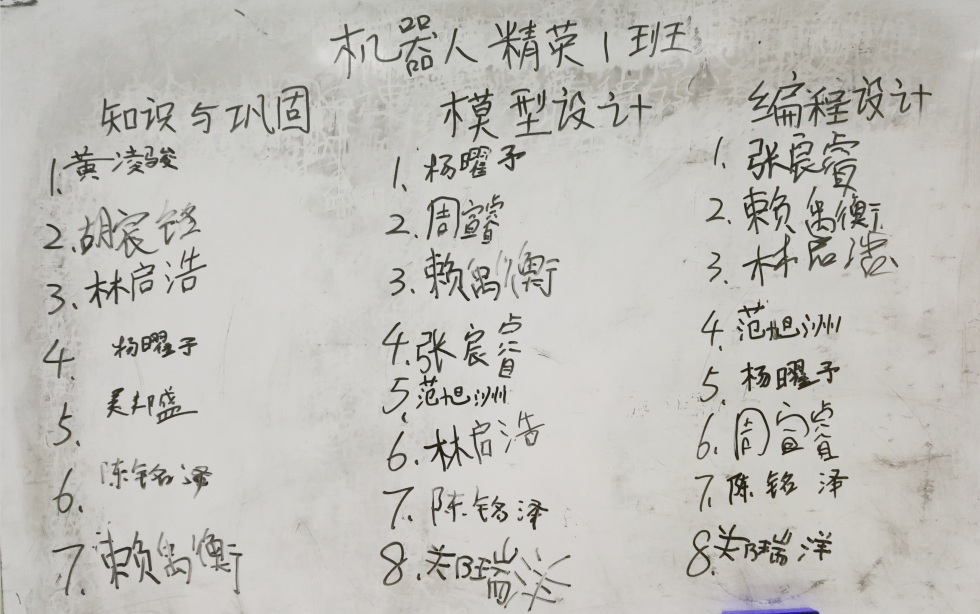 机器人精英1班
知识与巩固
1.黄凌骏
2.胡宸铭
3.林启浩
4 杨曜予
5.吴邦盛
6.陈铭泽
7.赖禹衡
模型设计
1.杨曜予
2.周宣睿
3.赖禹衡
4.张宸睿
5.范旭洲
6.林启浩
7.陈铭泽
8.关瑞洋
编程设计
1.张宸睿
2.赖禹衡
3.林启浩
4.范旭洲
5.杨曜予
6.周宣睿
7.陈铭泽
8.瑞洋